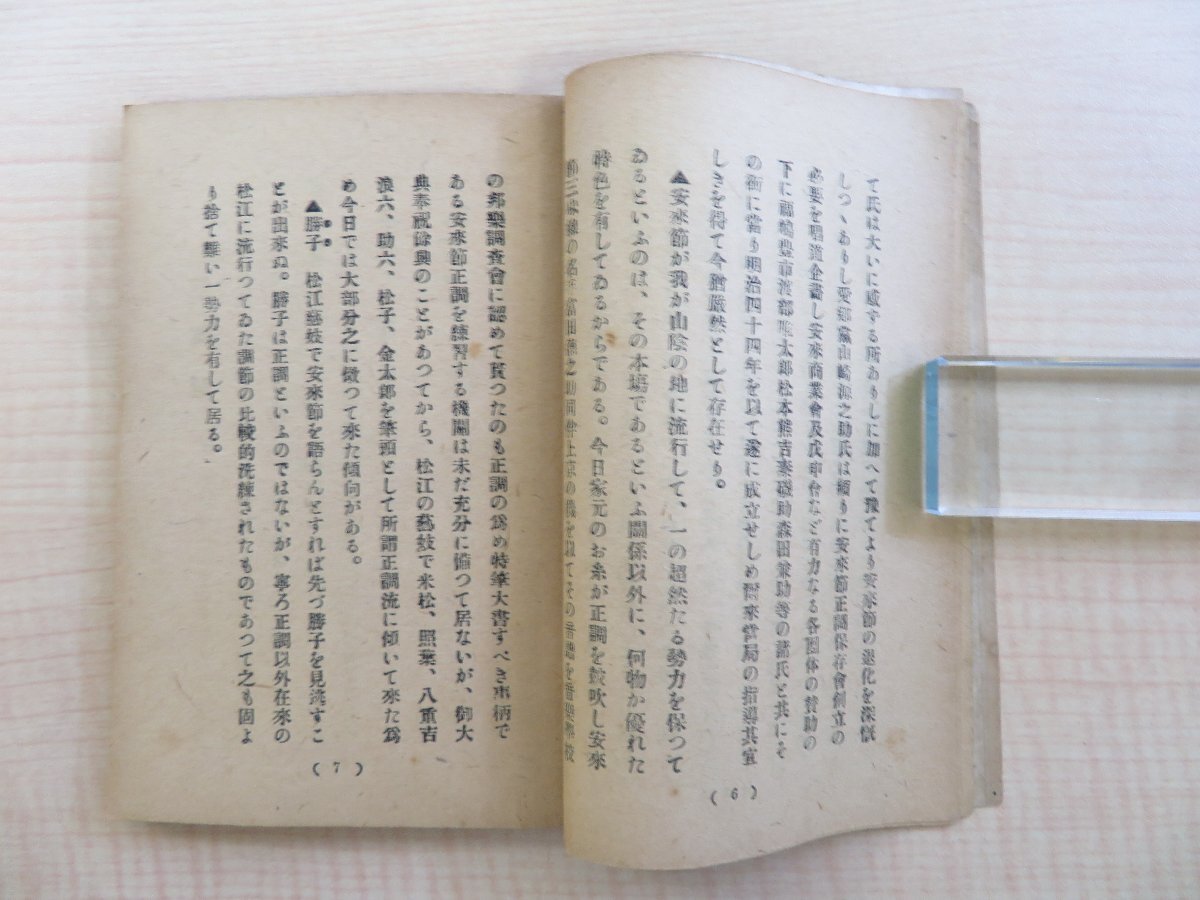 て氏は大いに感する所ありしに加へて豫てより安來節の退化を深慨
しつゝありし愛郷黨山崎卯之助氏は頻りに安來節正調保存會創立の
必要を唱道企畵し安來商業會及戊申會など有力なる各團体の賛助の
下に福島豊市渡部 太郎松本熊吉秦磯助森田兼助等の諸氏と共にそ
の衝に當り明治四十四年を以て遂に成立せしめ爾來當局の指導其宜
しきを得て今猶嚴然として存在せり。
▲安來節が我が山陰の地に流行して、一の超然たる勢力を保つて
ゐるといふのは、その本場であるといふ關係以外に、何物か優れた
特色を有してゐるからである。今日家元のお糸が正調を鼓吹し安來
節三味線の名 富田德之助同伴上京の機を以てその音譜を音樂學校
(6)
の邦樂調査會に認めて貰つたのも正調の爲め特筆大書すべき事柄で
ある安來節正調を練習する機關は未だ充分に備つて居ないが、御大
典奉祝餘興のことがあつてから、松江の藝妓で米松、照葉、八重吉
浪六、助六、松子、金太郎を筆頭として所謂正調流に傾いて來た爲
め今日では大部分之に倣つて來た傾向がある。
▲勝子 松江藝妓で安來節を語らんとすれば先づ勝子を見逃すこ
とが出來ぬ。勝子は正調といふのではないが、寧ろ正調以外在來の
松江に流行つてゐた調節の比較的洗練されたものであつて之も固よ
り捨て難い一勢力を有して居る。
(7)